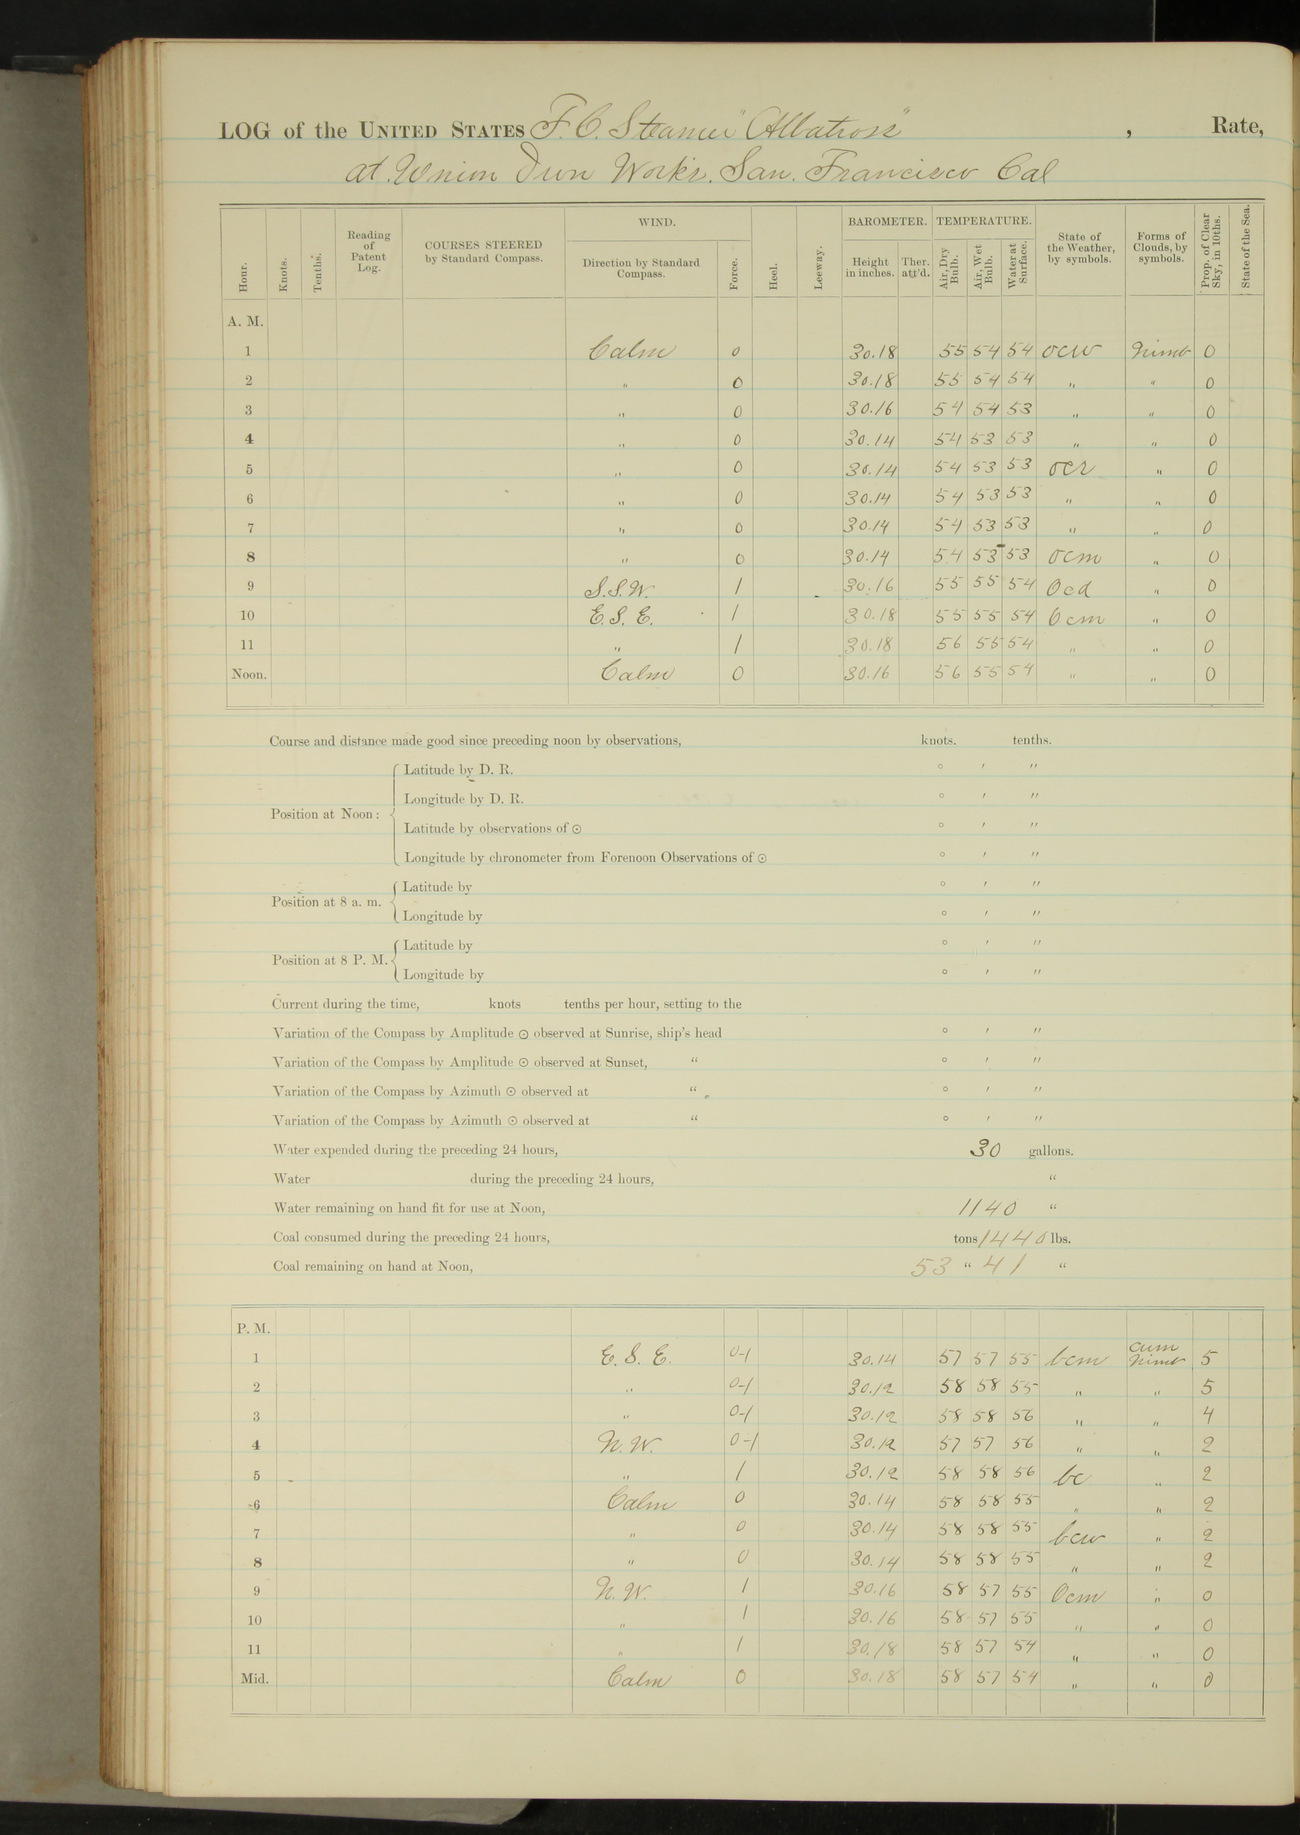 LOG of the UNITED STATES F. C. Steamer "Albatross", Rate,
at Union Iron Works. San. Francisco Cal
Hour. Knots. Tenths. Reading of Patent Log. COURSES STEERED by Standard Compass. WIND. Direction by Standard Compass. Force. Heel. Leeway. BAROMETER. Height in inches. Ther. att'd. TEMPERATURE. Air, Dry Bulb. Air, Wet Bulb. Water at Surface. State of the Weather, by symbols. Forms of Clouds, by symbols. Prop. of Clear Sky, in 10ths. State of the Sea.
A. M.
1 Calm 0 30.18 55 54 54 ocw Nimb 0
2 " 0 30.18 55 54 54 " " 0
3 " 0 30.16 54 54 53 " " 0
4 " 0 30.14 54 53 53 " " 0
5 " 0 30.14 54 53 53 ocr " 0
6 " 0 30.14 54 53 53 " " 0
7 " 0 30.14 54 53 53 " " 0
8 " 0 30.14 54 53 53 ocm " 0
9 S.S.W. 1 30.16 55 55 54 Ocd " 0
10 E.S.E. 1 30.18 55 55 54 Ocm " 0
11 " 1 30.18 56 55 54 " " 0
Noon. Calm 0 30.16 56 55 54 " " 0
Course and distance made good since preceding noon by observations, knots. tenths.
Position at Noon:
Latitude by D. R. ° ′ ″
Longitude by D. R. ° ′ ″
Latitude by observations of ⊙ ° ′ ″
Longitude by chronometer from Forenoon Observations of ⊙ ° ′ ″
Position at 8 a. m.
Latitude by ° ′ ″
Longitude by ° ′ ″
Position at 8 P. M.
Latitude by ° ′ ″
Longitude by ° ′ ″
Current during the time, knots tenths per hour, setting to the
Variation of the Compass by Amplitude ⊙ observed at Sunrise, ship's head ° ′ ″
Variation of the Compass by Amplitude ⊙ observed at Sunset, " ° ′ ″
Variation of the Compass by Azimuth ⊙ observed at " ° ′ ″
Variation of the Compass by Azimuth ⊙ observed at " ° ′ ″
Water expended during the preceding 24 hours, 30 gallons.
Water during the preceding 24 hours, "
Water remaining on hand fit for use at Noon, 1140 "
Coal consumed during the preceding 24 hours, tons 1440 lbs.
Coal remaining on hand at Noon, 53 " 41 "
P. M.
1 E. S. E. 0-1 30.14 57 57 55 bcm Cum Nimb 5
2 " 0-1 30.12 58 58 55 " " 5
3 " 0-1 30.12 58 58 56 " " 4
4 N. W. 0-1 30.12 57 57 56 " " 2
5 " 1 30.12 58 58 56 bc " 2
6 Calm 0 30.14 58 58 55 " " 2
7 " 0 30.14 58 58 55 bcw " 2
8 " 0 30.14 58 58 55 " " 2
9 N. W. 1 30.16 58 57 55 Ocm " 0
10 " 1 30.16 58 57 55 " " 0
11 " 1 30.18 58 57 54 " " 0
Mid. Calm 0 30.18 58 57 54 " " 0